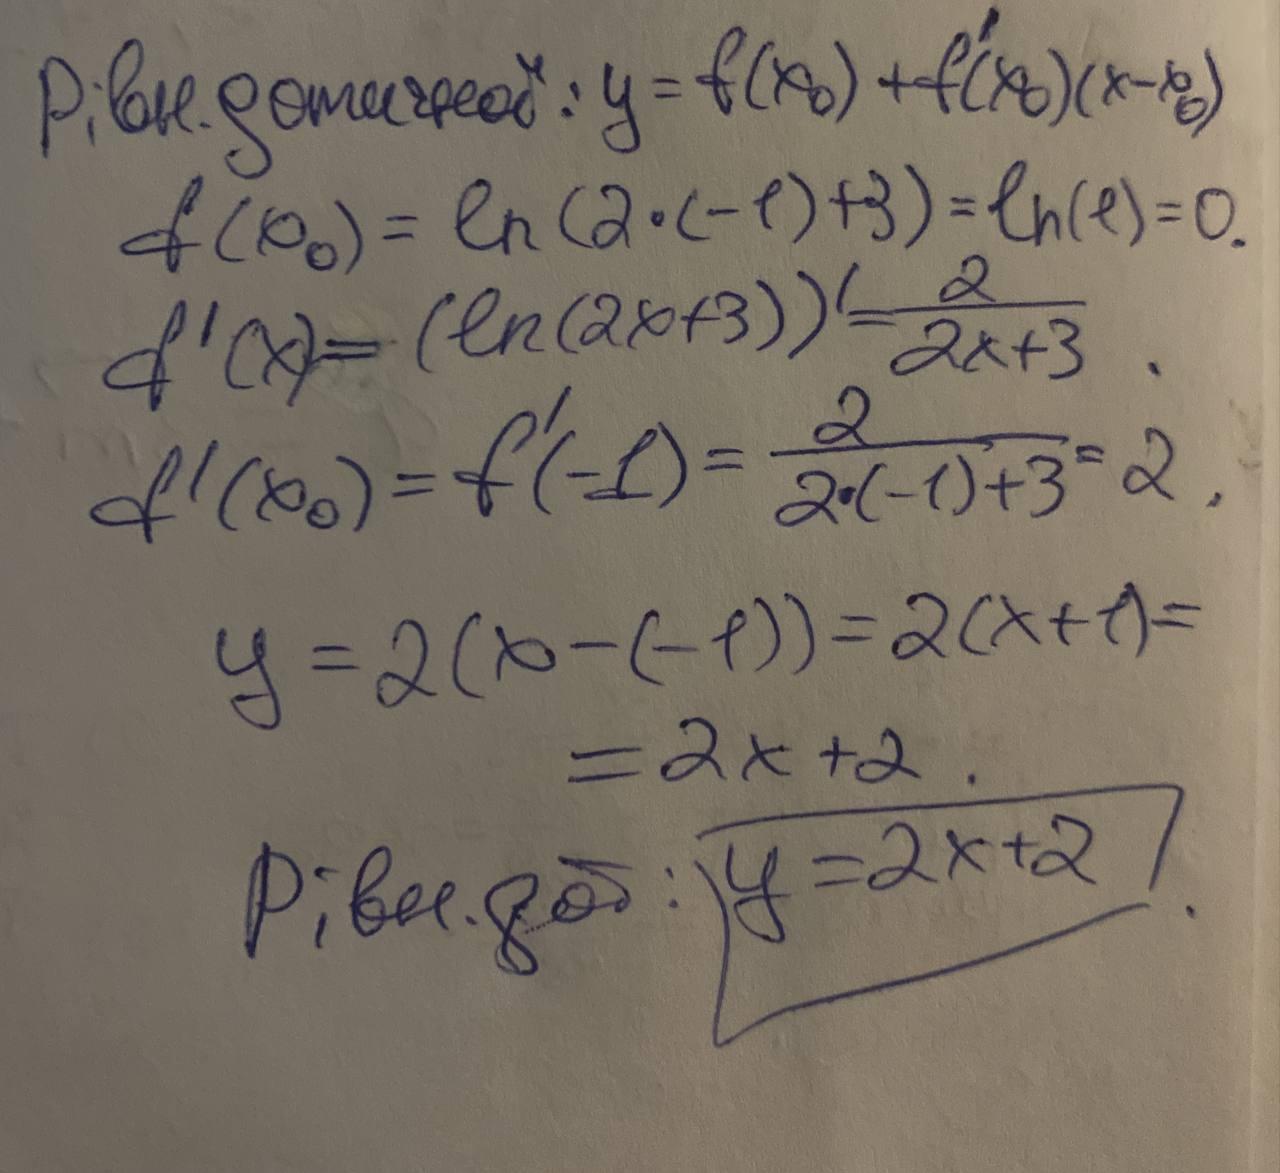 Рівн. дотичної: y = f(x₀) + f'(x₀)(x-x₀)
f(x₀) = ln(2·(-1)+3) = ln(1) = 0.
f'(x) = (ln(2x+3))' = 2/(2x+3).
f'(x₀) = f'(-1) = 2/(2·(-1)+3) = 2.
y = 2(x-(-1)) = 2(x+1) =
= 2x+2.
Рівн. дот: y = 2x+2.